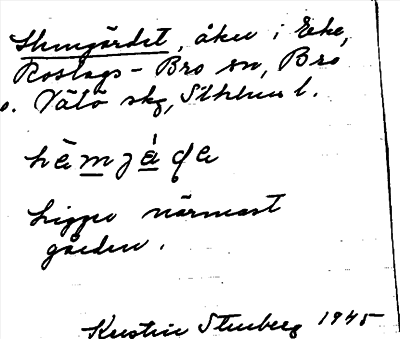 Hemgärdet, åker i Eke,
Roslags-Bro sn, Bro
o. Väto skg, Sthlms l.
hèmjá̱ɖa
Ligger närmast
gården.
Kerstin Stenberg 1945